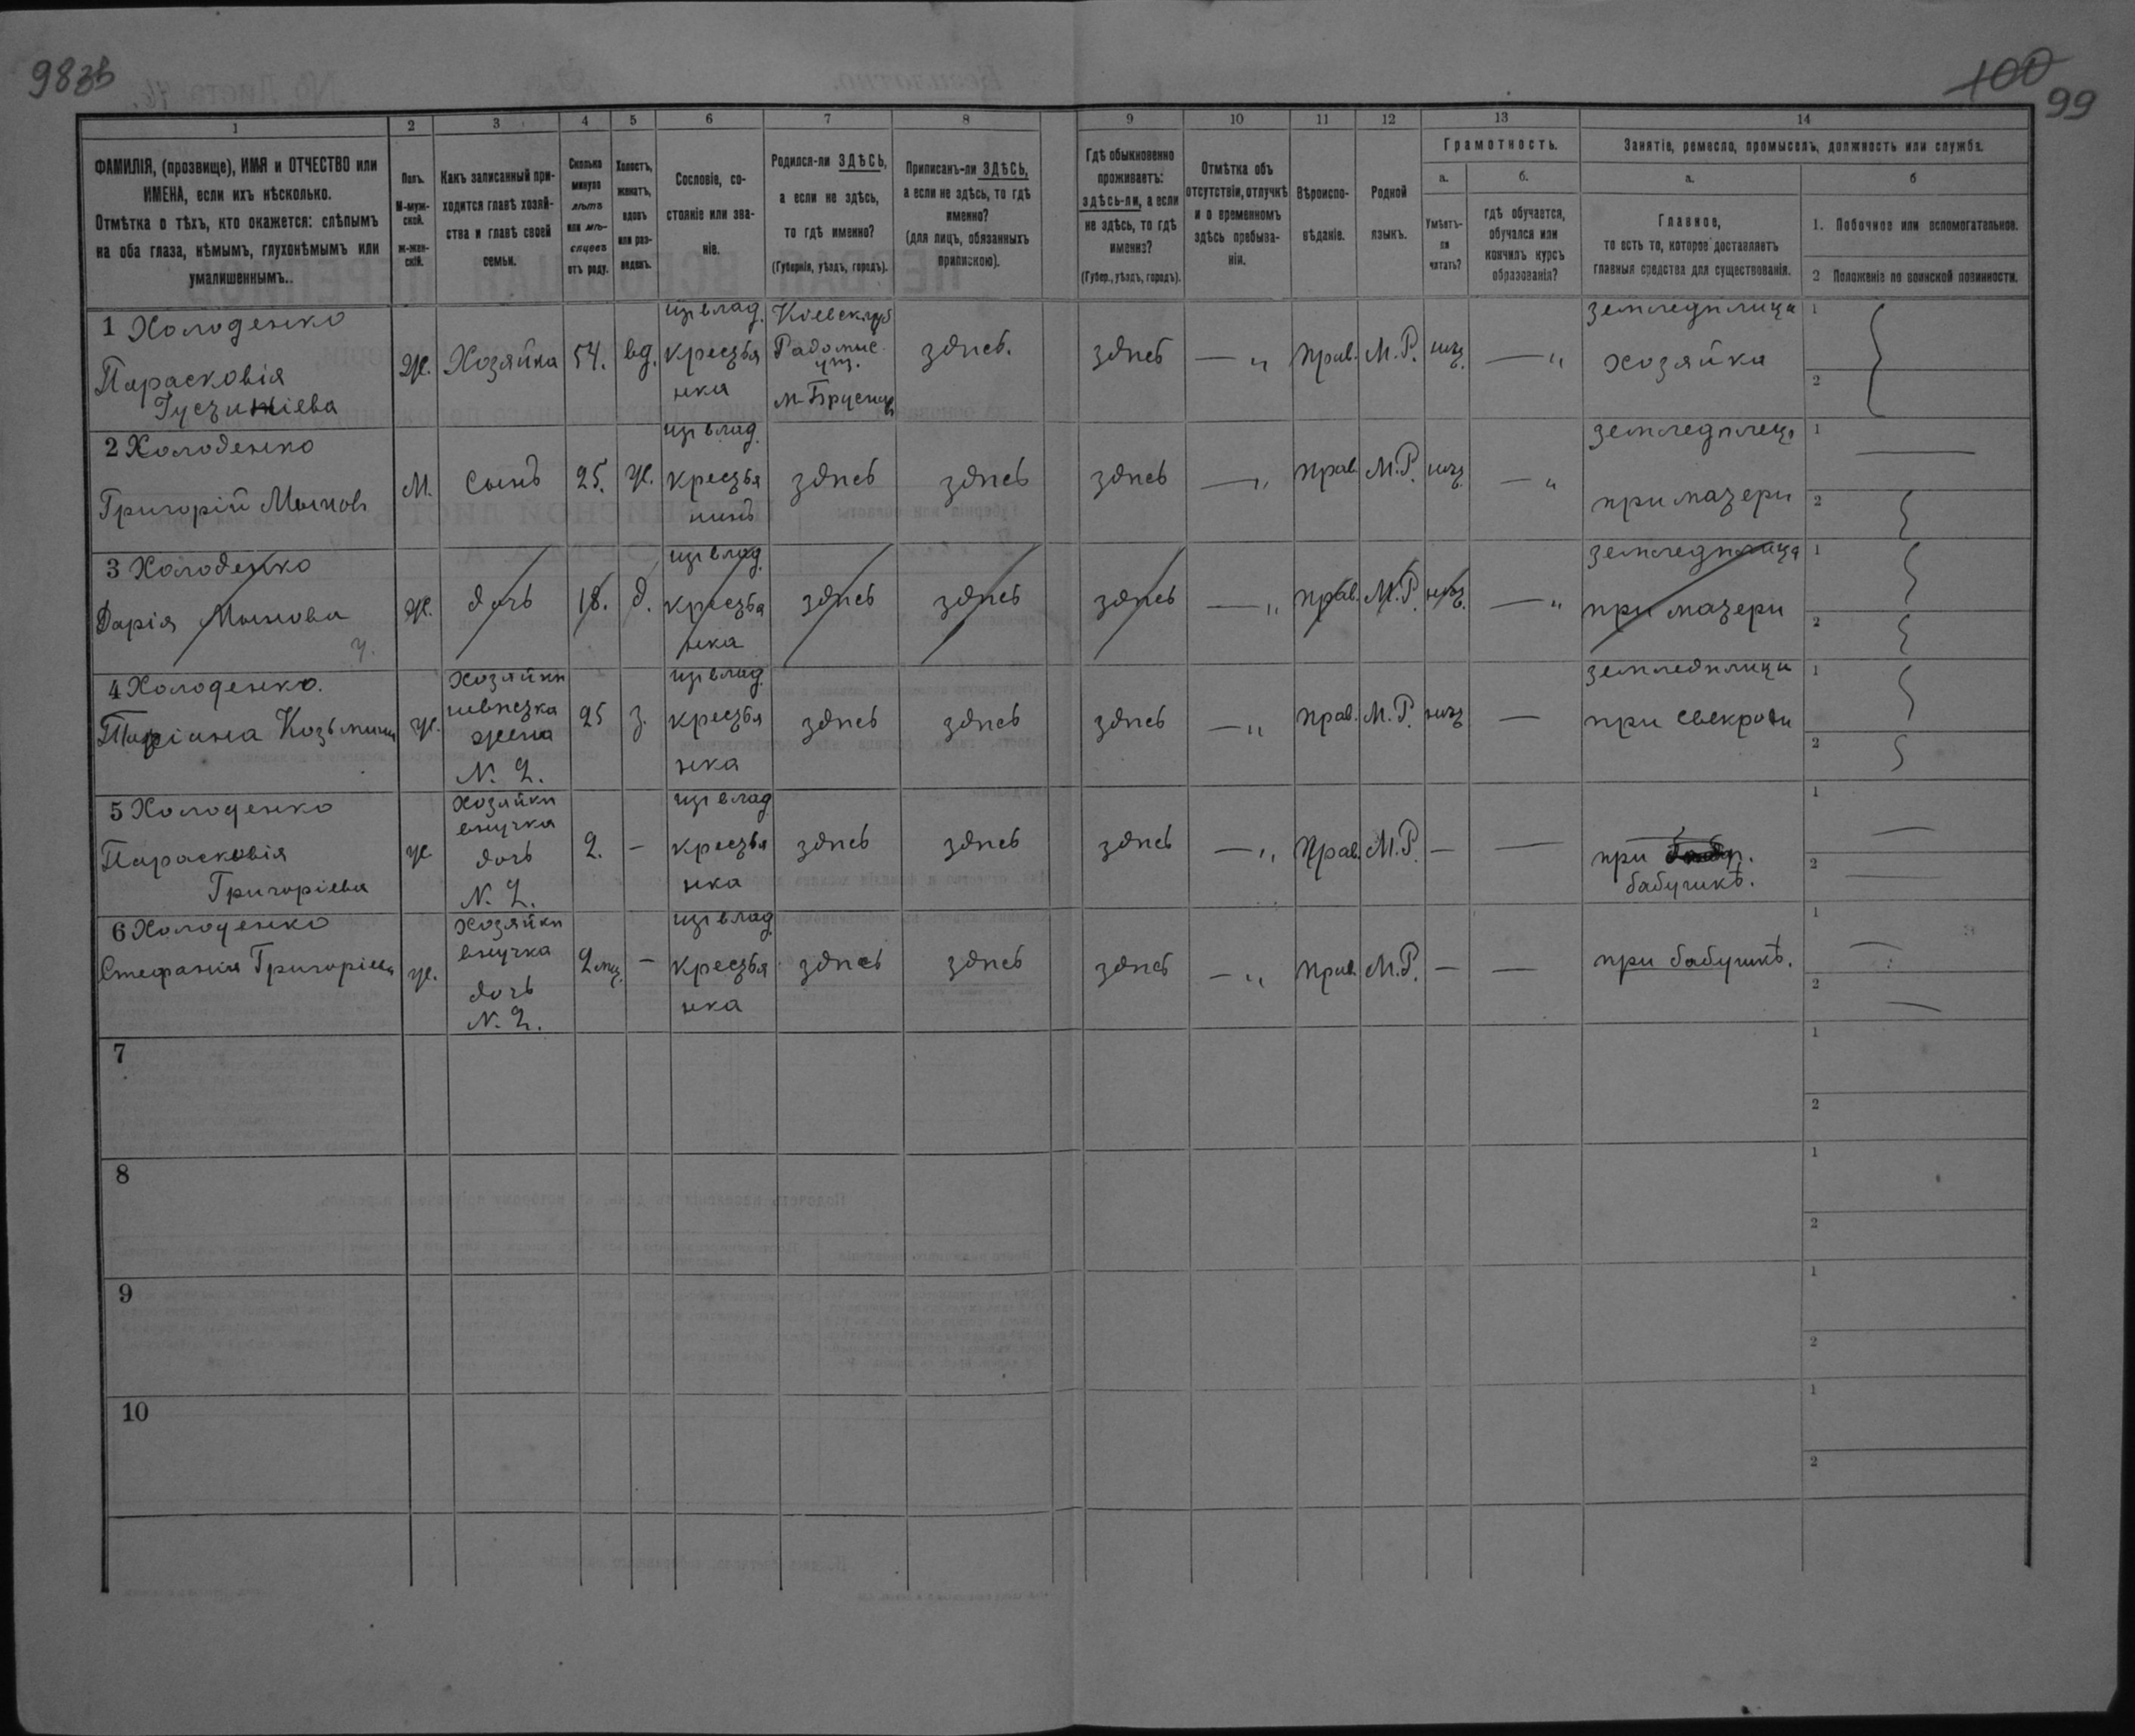 98зв
100
99
1
2
3
4
5
6
7
8
9
10
11
12
13
14
ФАМИЛІЯ, (прозвище), ИМЯ и ОТЧЕСТВО или
ИМЕНА, если ихъ нѣсколько.
Отмѣтка о тѣхъ, кто окажется: слѣпымъ
на оба глаза, нѣмымъ, глухонѣмымъ или
умалишеннымъ.
Полъ.
М-муж-
ской.
ж-жен-
скій.
Какъ записанный при-
ходится главѣ хозяй-
ства и главѣ своей
семьи.
Сколько
минуло
лѣтъ
или мѣ-
сяцевъ
отъ роду.
Холостъ,
женатъ,
вдовъ
или раз-
веденъ.
Сословіе, со-
стояніе или зва-
ніе.
Родился-ли ЗДѢСЬ,
а если не здѣсь,
то гдѣ именно?
(Губернія, уѣздъ, городъ).
Приписанъ-ли ЗДѢСЬ,
а если не здѣсь, то гдѣ
именно?
(для лицъ, обязанныхъ
припискою).
Гдѣ обыкновенно
проживаетъ:
здѣсь-ли, а если
не здѣсь, то гдѣ
именно?
(Губер., уѣздъ, городъ).
Отмѣтка объ
отсутствіи, отлучкѣ
и о временномъ
здѣсь пребыва-
ніи.
Вѣроиспо-
вѣданіе.
Родной
языкъ.
Грамотность.
а.
б.
Умѣетъ-
ли
читать?
гдѣ обучается,
обучался или
кончилъ курсъ
образованія?
Занятіе, ремесло, промыселъ, должность или служба.
а.
б
Главное,
то есть то, которое доставляетъ
главныя средства для существованія.
1. Побочное или вспомогательное.
2 Положеніе по воинской повинности.
1 Холоденко
Парасковія
Ж. Хозяйка 54. вд.
из влад.
крестья
нка
Кіевск. губ
Радомыс.
уѣз.
здѣсь. здѣсь — „ прав. М.Р. нѣт. — „
земледѣлица
хозяйка
1
2
2 Холоденко
Григорій
М. Сынъ 25. ж.
из влад.
крестья
нинъ
здѣсь здѣсь здѣсь — „ прав. М.Р. нѣт. — „
земледѣлец
при матери
1
2
3 Холоденко
Дарія
Ж. дочь 18. д.
из влад.
крестья
нка
здѣсь здѣсь здѣсь — „ прав. М.Р. нѣт. — „
земледѣлица
при матери
1
2
4 Холоденко.
ж.
Хозяйки
невѣстка
жена
N. 2.
25 з.
из влад.
крестья
нка
здѣсь здѣсь здѣсь — „ прав. М.Р. нѣт —
земледѣлица
при свекрови
1
2
5 Холоденко
Парасковія
Григоріева
ж.
Хозяйки
внучка
дочь
N. 2.
2. —
из влад
крестья
нка
здѣсь здѣсь здѣсь — „ Прав. М.Р. — —
при
бабушкѣ.
1
2
6 Холоденко
Стефанія Григоріева
ж.
Хозяйки
внучка
дочь
N. 2.
2 мѣс. —
из влад.
крестья
нка
здѣсь здѣсь здѣсь — „ прав. М.Р. — —
при бабушкѣ.
1
2
7
1
2
8
1
2
9
1
2
10
1
2